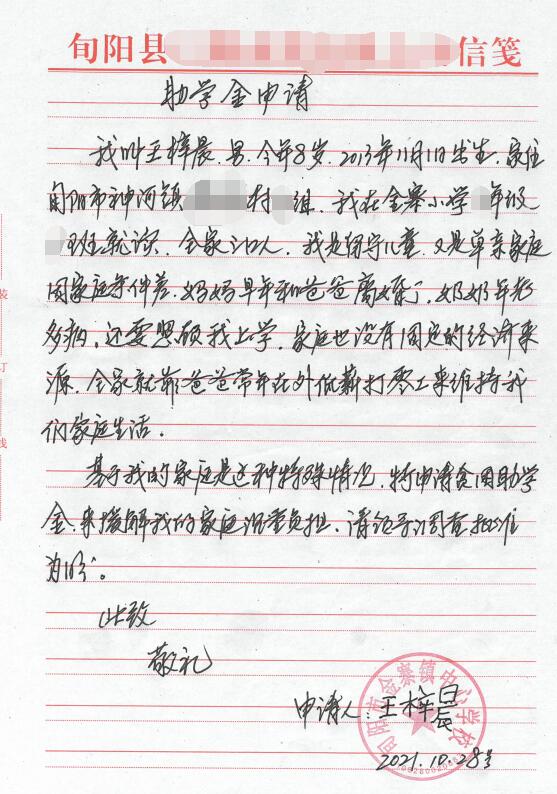 旬阳县 信笺
助学金申请
我叫王梓晨,男,今年8岁,2013年11月1日出生,家住
旬阳市神河镇 村 组,我在金寨小学 年级
班就读,全家三口人,我是留守儿童,又是单亲家庭
因家庭条件差,妈妈早年和爸爸离婚了,奶奶年老
多病,还要照顾我上学,家庭也没有固定的经济来
源,全家就靠爸爸常年在外低薪打零工来维持我
们家庭生活。
基于我的家庭是这种特殊情况,特申请贫困助学
金,来援解我的家庭沉重负担,请领导调查批准
为盼。
此致
敬礼
申请人:王梓晨
2021.10.28号
旬阳市金寨镇中心学校
装
订
线